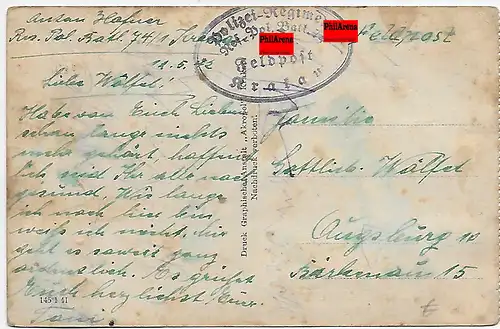 Anton Hafner
Res. Pol. Batl. 74/1
11.5.42
Feldpost
Polizei-Regiment
Res. Pol. Batl.
Feldpost
Krakau
PhilArena
PhilArena
Liebe Wölfel!
Habe von Euch Lieben
schon lange nichts
mehr gehört, hoffent-
lich seid Ihr alle noch
gesund. Wie lange
ich noch hier bin
weiß ich nicht, mir
geht es soweit ganz
ordentlich. Es grüßt
Euch herzlichst Euer
Toni
145 1 41
Druck Graphische Anstalt „Akropol“, Krakau
Nachdruck verboten!
Familie
Gottlieb Wölfel
Augsburg 10
Bärenau 15